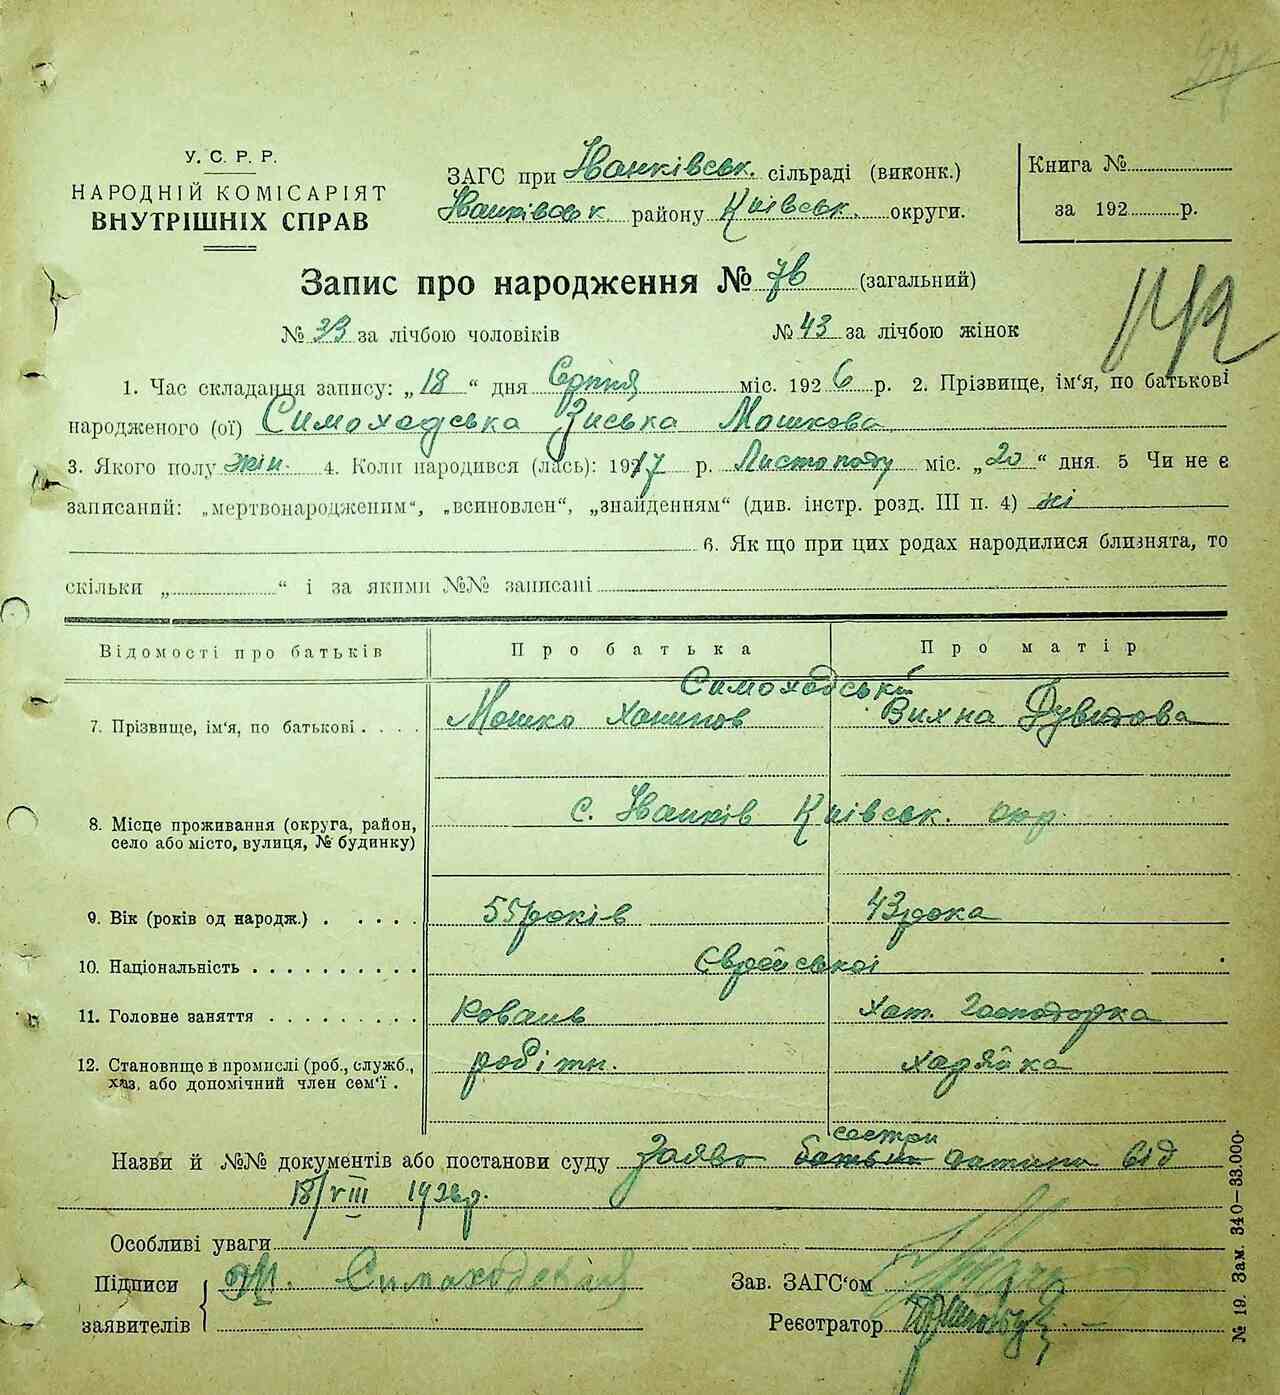 У. С. Р. Р.
НАРОДНІЙ КОМІСАРІЯТ
ВНУТРІШНІХ СПРАВ
ЗАГС при Іванківськ. сільраді (виконк.)
Іванківськ. району Київськ. округи.
Книга №
за 192 р.
Запис про народження № 76 (загальний)
№ 33 за лічбою чоловіків № 43 за лічбою жінок
1. Час складання запису: „18“ дня Серпня міс. 1926 р. 2. Прізвище, ім‘я, по батькові
народженого (ої) Симоходська Зиська Мошкова
3. Якого полу жін. 4. Коли народився (лась): 1917 р. Листопаду міс. „20“ дня. 5 Чи не є
записаний: „мертвонародженим“, „всиновлен“, „знайденням“ (див. інстр. розд. III п. 4) ні
6. Як що при цих родах народилися близнята, то
скільки „ “ і за якими №№ записані
Відомості про батьків Про батька Про матір
Симоходські
7. Прізвище, ім‘я, по батькові . . . . Мошко Хаимов Вихна Дувидова
8. Місце проживання (округа, район,
село або місто, вулиця, № будинку)
с. Іванків Київськ. окр.
9. Вік (років од народж.) . . . . . 55 років 43 рока
10. Національність . . . . . . . . . . Єврейської
11. Головне заняття . . . . . . . . . Коваль хат. господорка
12. Становище в промислі (роб., служб.,
хаз. або допомічний член сем‘ї .
робітн. хазяйка
сестри
Назви й №№ документів або постанови суду Заява батька дитини від
18/VIII 1926р.
Особливі уваги
Підписи
заявителів
Симоходская
Зав. ЗАГС‘ом
Реєстратор
№ 19. Зам. 340—33.000.